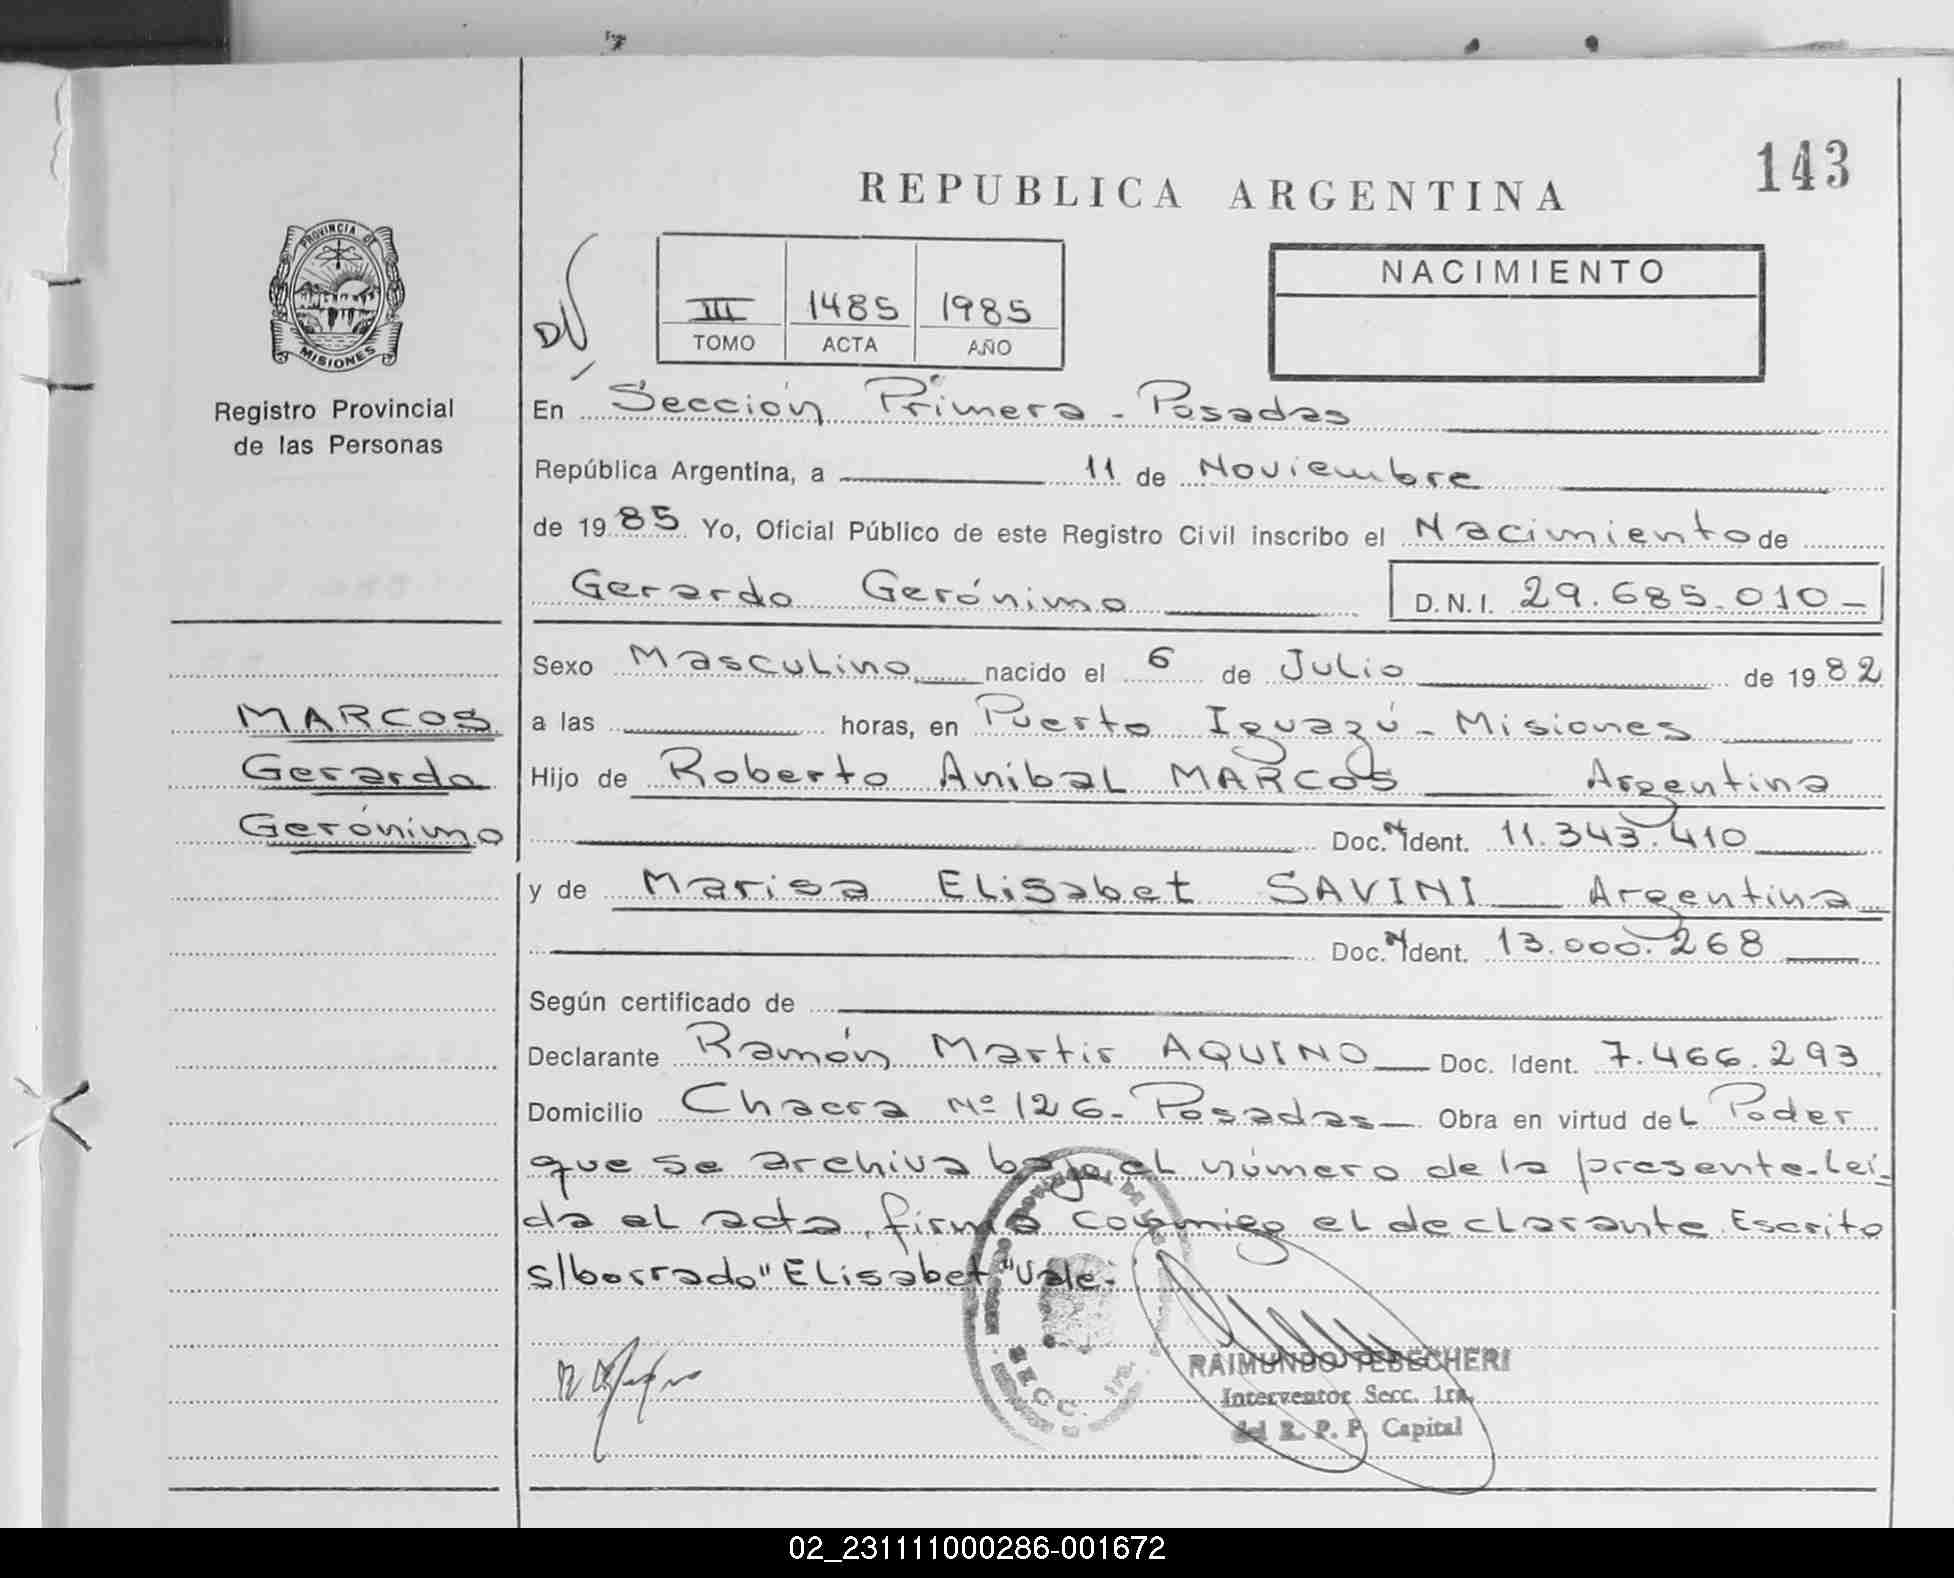 143
REPUBLICA ARGENTINA
PROVINCIA DE
MISIONES
Registro Provincial
de las Personas
III 1485 1985
TOMO ACTA AÑO
NACIMIENTO
En Sección Primera - Posadas
República Argentina, a 11 de Noviembre
de 1985 Yo, Oficial Público de este Registro Civil inscribo el Nacimiento de
Gerardo Gerónimo D.N.I. 29.685.010-
Sexo Masculino nacido el 6 de Julio de 1982
MARCOS
Gerardo
Gerónimo
a las horas, en Puerto Iguazú - Misiones
Hijo de Roberto Anibal MARCOS Argentina
Doc. N Ident. 11.343.410
y de Marisa Elisabet SAVINI Argentina
Doc. N Ident. 13.000.268
Según certificado de
Declarante Ramón Martir AQUINO Doc. Ident. 7.466.293
Domicilio Chacra Nº 126- Posadas Obra en virtud del Poder
que se archiva bajo el número de la presente-Leí-
da el acta, firma conmigo el declarante. Escrito
s/borrado "Elisabet" Vale.-
SECC. 1ra.
RAIMUNDO TEBECHERI
Interventor Secc. 1ra.
del R. P. P. Capital
02_231111000286-001672